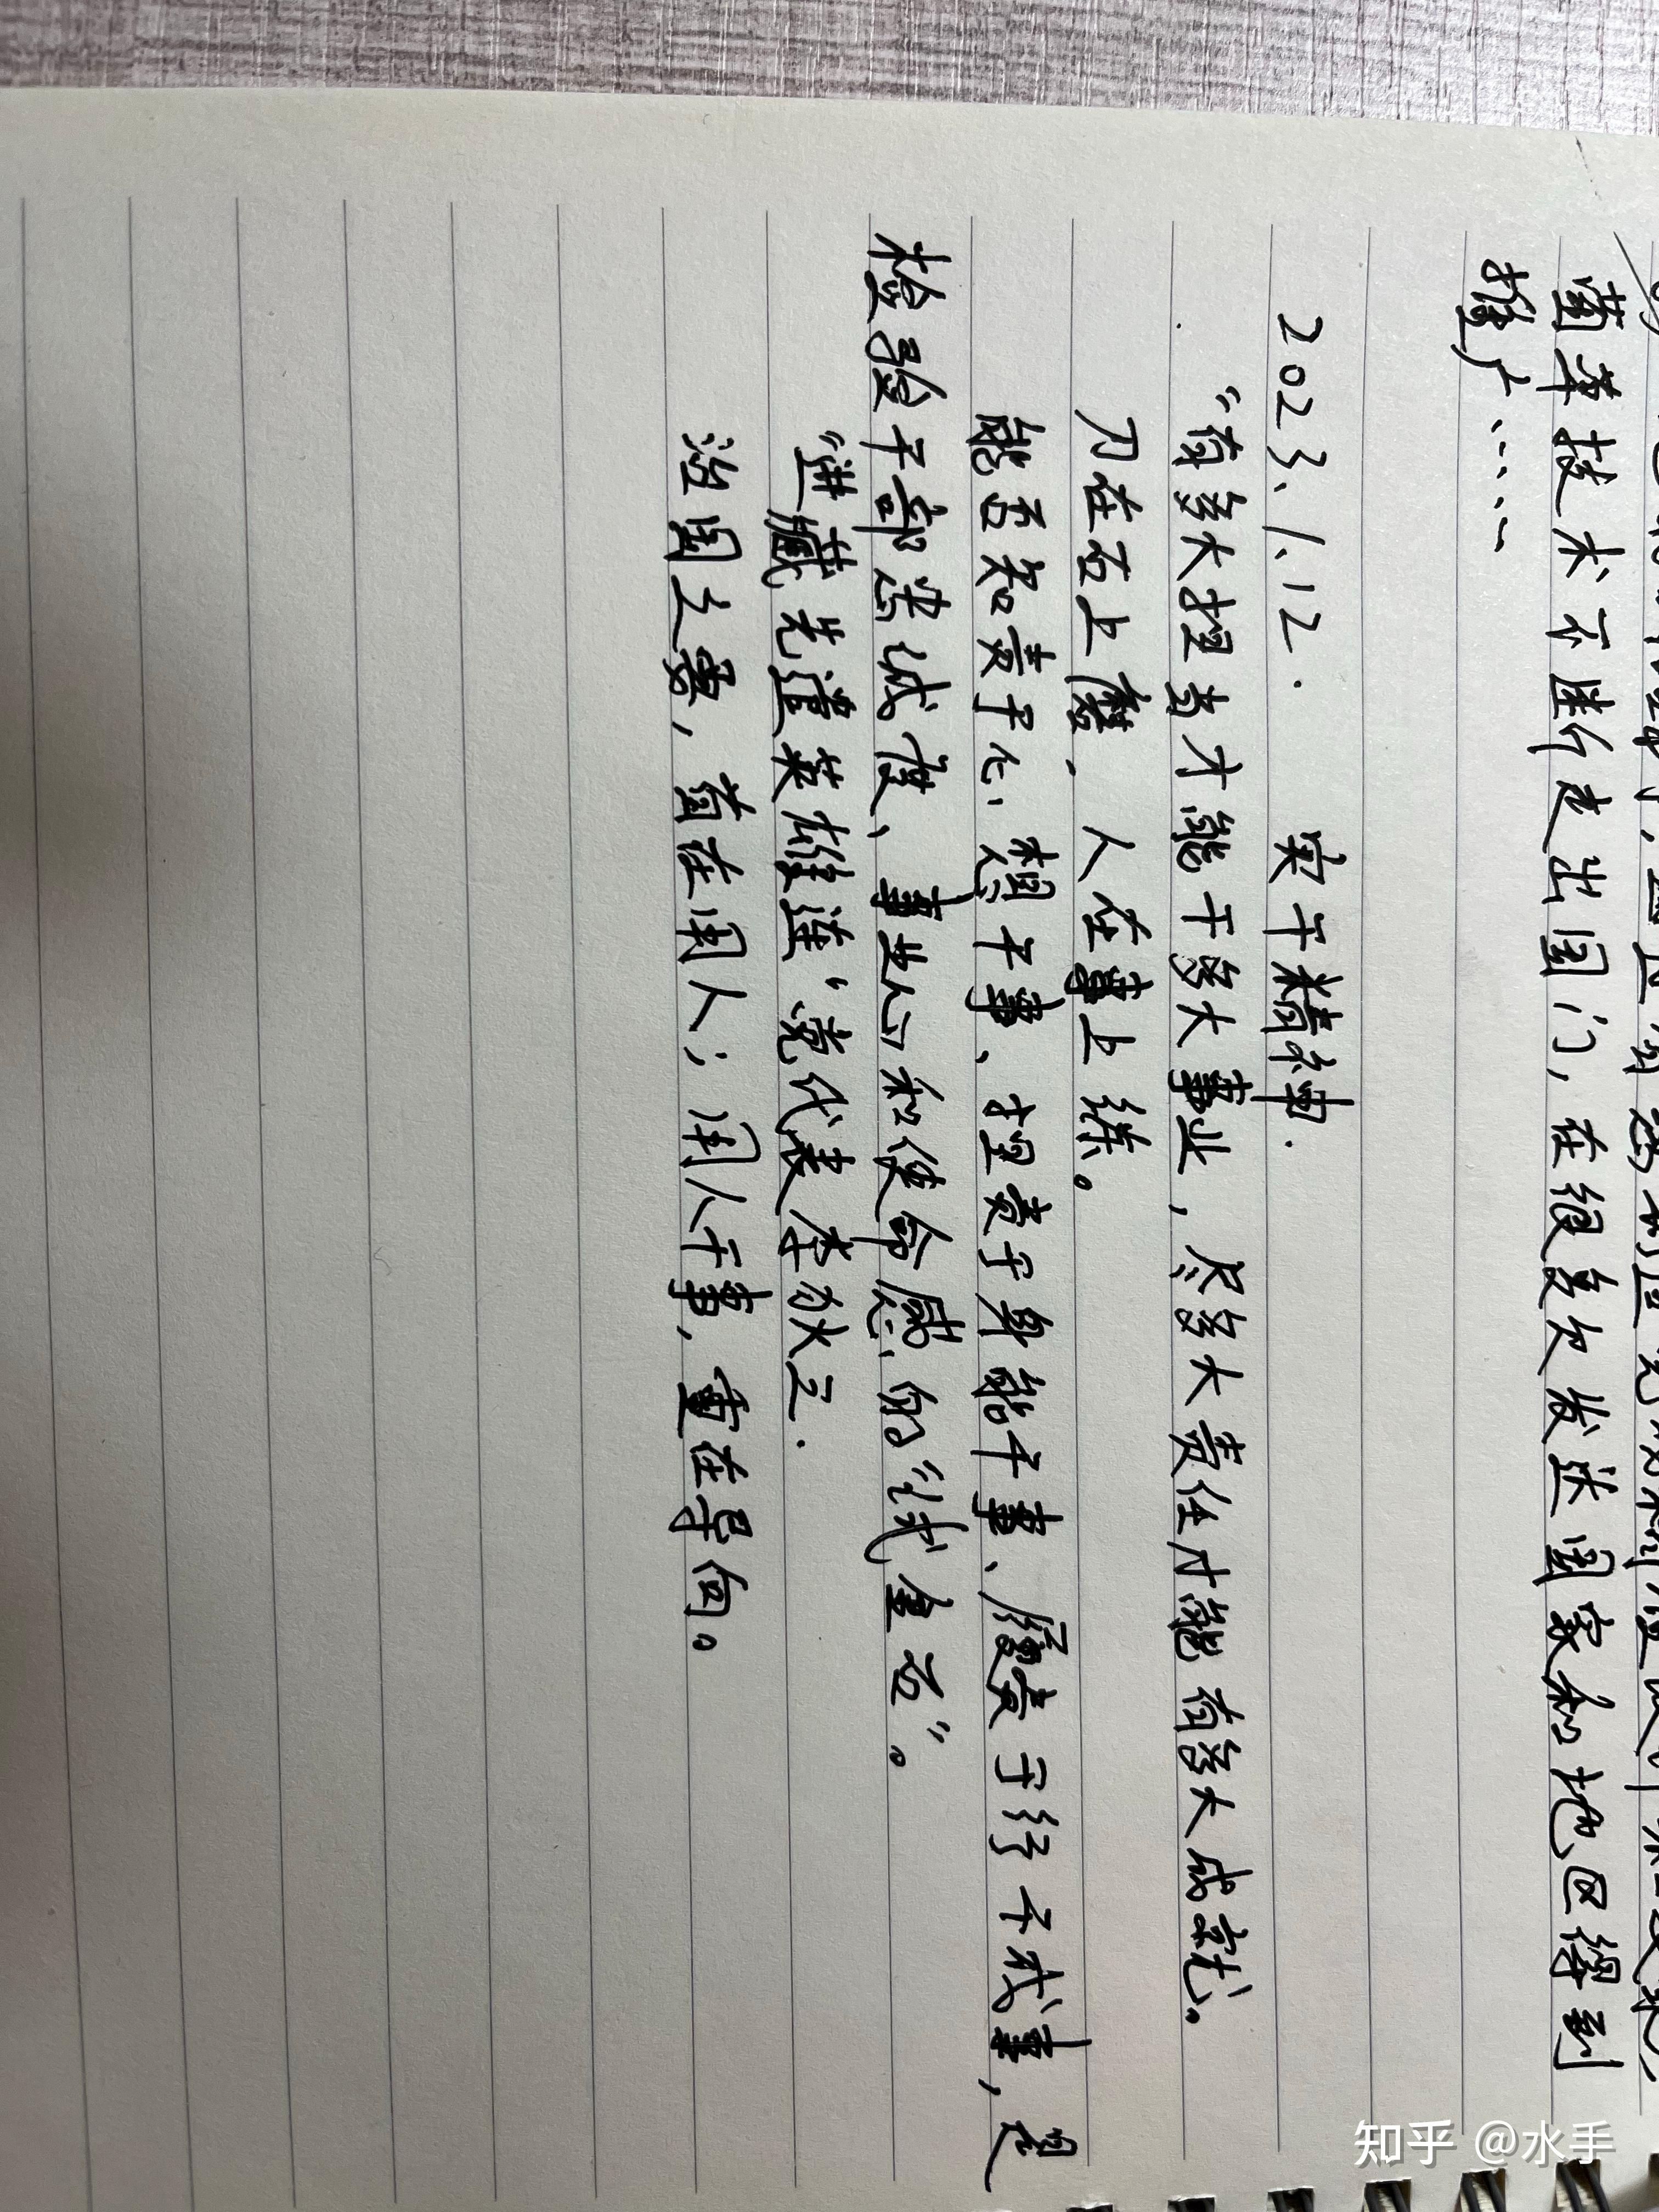 菌草技术不断走出国门，在很多欠发达国家和地区得到
推广……
2023.1.12. 实干精神.
“有多大担当才能干多大事业，尽多大责任才能有多大成就。
刀在石上磨、人在事上练。
能否知责于心、想干事、担责于身能干事、履责于行干成事，是
检验干部忠诚度、事业心和使命感的“试金石”。
“进藏先遣英雄连”党代表李狄三.
治国之要，首在用人；用人干事，重在导向。
知乎 @水手